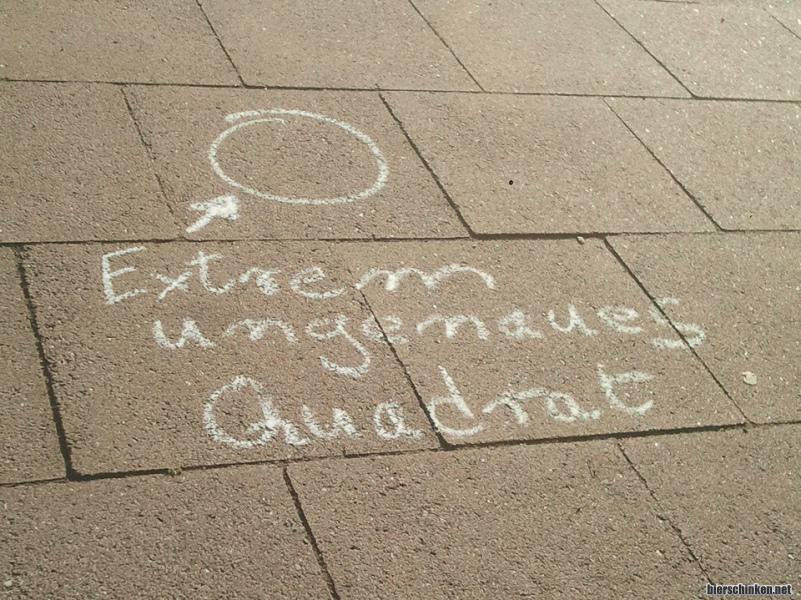 Extrem
ungenaues
Quadrat
bierschinken.net